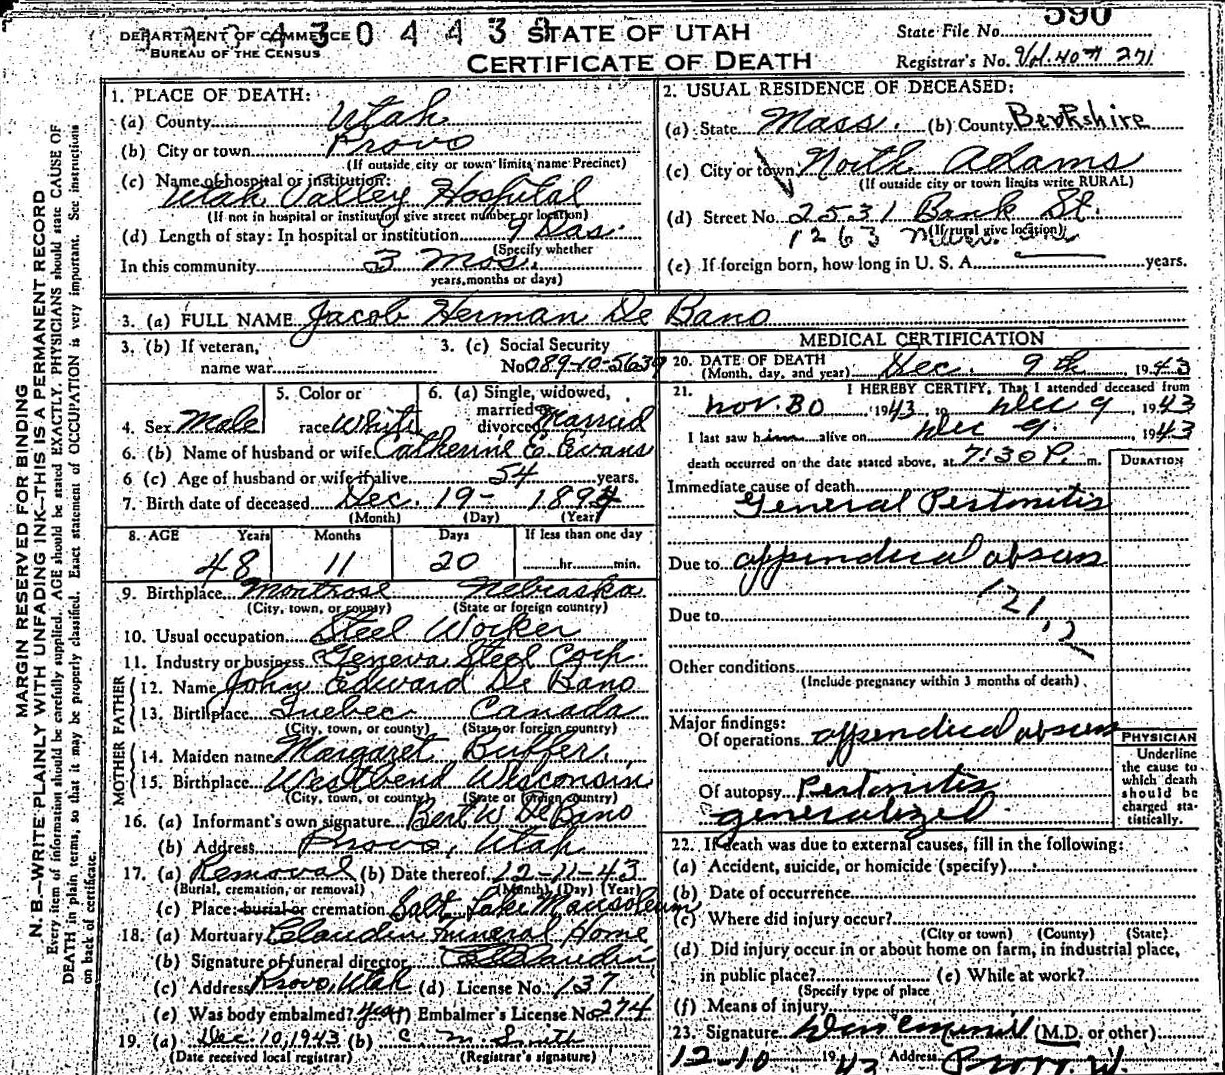 DEPARTMENT OF COMMERCE
BUREAU OF THE CENSUS
STATE OF UTAH
CERTIFICATE OF DEATH
State File No. 590
Registrar's No. Vol. 40 # 271
MARGIN RESERVED FOR BINDING
N. B.—WRITE PLAINLY WITH UNFADING INK—THIS IS A PERMANENT RECORD
Every item of information should be carefully supplied. AGE should be stated EXACTLY. PHYSICIANS should state CAUSE OF
DEATH in plain terms, so that it may be properly classified. Exact statement of OCCUPATION is very important. See instructions
on back of certificate.
1. PLACE OF DEATH:
(a) County Utah
(b) City or town Provo
(If outside city or town limits name Precinct)
(c) Name of hospital or institution:
Utah Valley Hospital
(If not in hospital or institution give street number or location)
(d) Length of stay: In hospital or institution 9 Das.
(Specify whether
In this community 3 Mos.
years, months or days)
2. USUAL RESIDENCE OF DECEASED:
(a) State Mass. (b) County Berkshire
(c) City or town North Adams
(If outside city or town limits write RURAL)
(d) Street No. 2531 Bank St.
(If rural give location)
1263
(e) If foreign born, how long in U. S. A. years.
3. (a) FULL NAME Jacob Herman De Bano
3. (b) If veteran,
name war
3. (c) Social Security
No. 089-10-5639
4. Sex Male
5. Color or
race White
6. (a) Single, widowed,
married or
divorced Married
6. (b) Name of husband or wife Catherine E. Evans
6 (c) Age of husband or wife if alive 54 years.
7. Birth date of deceased Dec. 19- 1894
(Month) (Day) (Year)
8. AGE Years Months Days If less than one day
48 11 20 hr. min.
9. Birthplace Montrose Nebraska
(City, town, or county) (State or foreign country)
10. Usual occupation Steel Worker
11. Industry or business Geneva Steel Corp.
FATHER
12. Name John Edward De Bano
13. Birthplace Quebec Canada
(City, town, or county) (State or foreign country)
MOTHER
14. Maiden name Margaret Buffer.
15. Birthplace Westbend Wisconsin
(City, town, or county) (State or foreign country)
16. (a) Informant's own signature Bert W. De Bano
(b) Address Provo, Utah
17. (a) Removal (b) Date thereof 12-11-43
(Burial, cremation, or removal) (Month) (Day) (Year)
(c) Place: burial or cremation Salt Lake Mausoleum
18. (a) Mortuary Claudin Funeral Home
(b) Signature of funeral director
(c) Address Provo, Utah (d) License No. 137
(e) Was body embalmed? yes (f) Embalmer's License No. 274
19. (a) Dec 10, 1943 (b) C M. Smith
(Date received local registrar) (Registrar's signature)
MEDICAL CERTIFICATION
20. DATE OF DEATH
(Month, day, and year) Dec. 9th, 1943
21. I HEREBY CERTIFY, That I attended deceased from
Nov. 30, 1943, to Dec 9, 1943
I last saw him alive on Dec 9, 1943
death occurred on the date stated above, at 7:30 P. m.
DURATION
Immediate cause of death
General Peritonitis
Due to appendiceal abscess
121
Due to
Other conditions
(Include pregnancy within 3 months of death)
Major findings:
Of operations appendiceal abscess
Of autopsy Peritonitis
generalized
PHYSICIAN
Underline
the cause to
which death
should be
charged sta-
tistically.
22. If death was due to external causes, fill in the following:
(a) Accident, suicide, or homicide (specify)
(b) Date of occurrence
(c) Where did injury occur?
(City or town) (County) (State)
(d) Did injury occur in or about home on farm, in industrial place,
in public place? (e) While at work?
(Specify type of place
(f) Means of injury
23. Signature (M.D. or other)
12-10 1943 Address Provo, U.